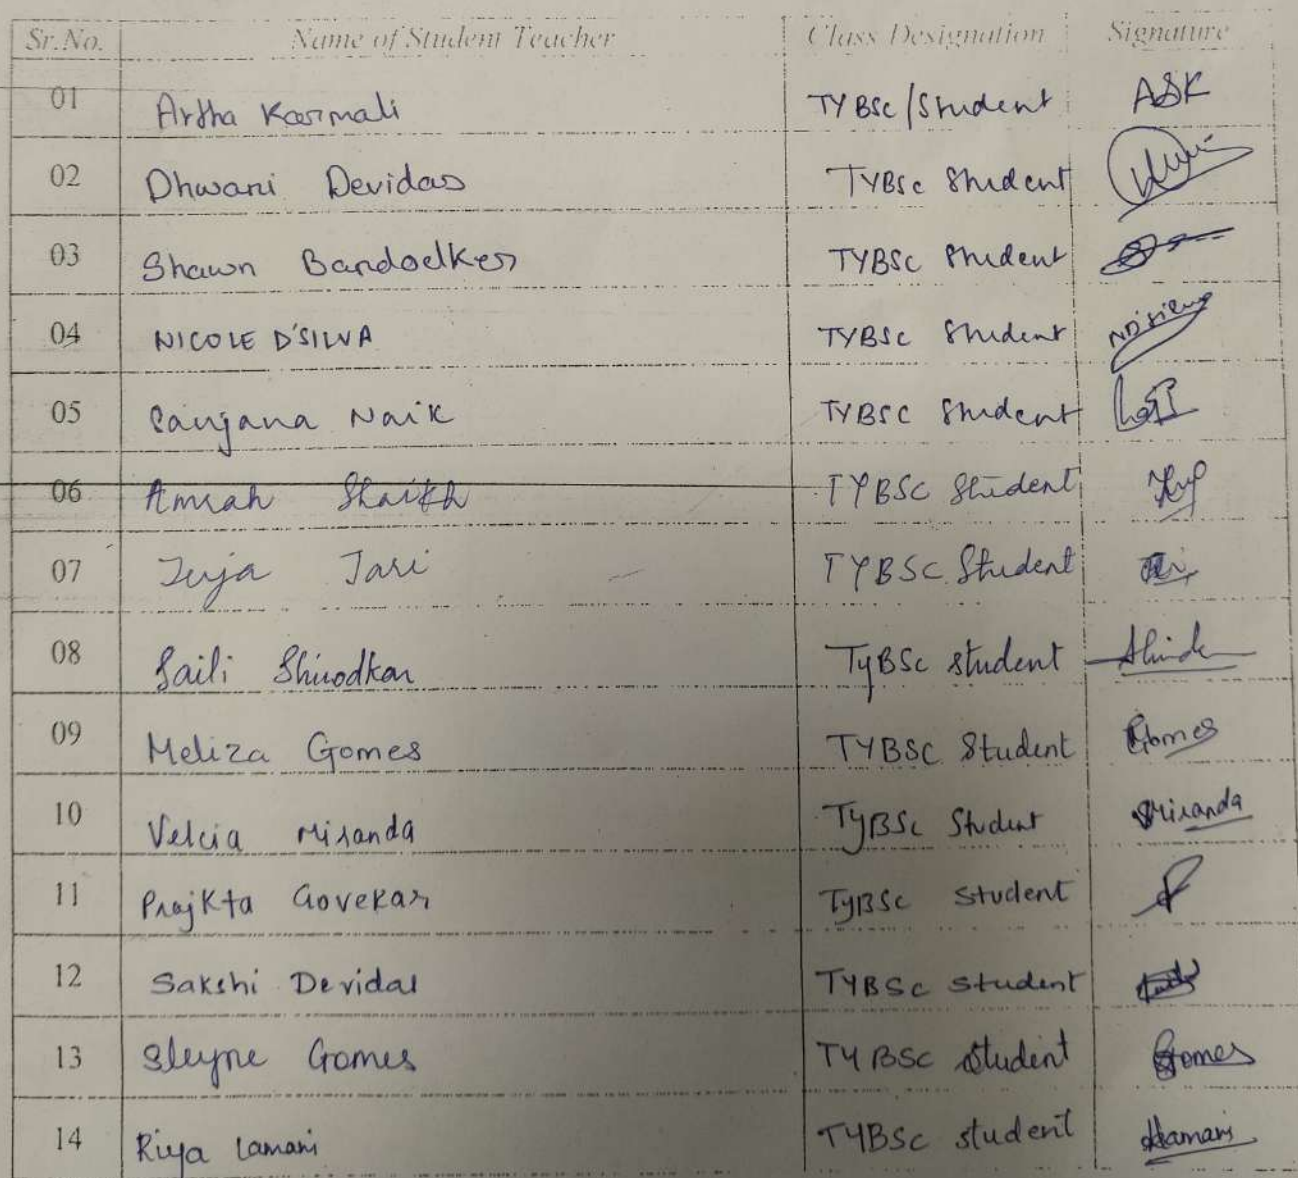 Sr.No. Name of Student Teacher Class Designation Signature
01 Artha Karmali TYBSc/Student ASK
02 Dhwani Devidas TYBSc Student
03 Shawn Bandodker TYBSc Student
04 NICOLE D'SILVA TYBSc Student NDsilva
05 Sanjana Naik TYBSC Student
06 Amrah Shaikh TYBSC Student
07 Tari TYBSC Student
08 Saili Shirodkar TyBSc student
09 Meliza Gomes TYBSC Student Gomes
10 Velcia Miranda TyBSc Student Miranda
11 Prajkta Govekar TyBSc student
12 Sakshi Devidas TYBSc student
13 Sleyne Gomes TYBSC student Gomes
14 Riya Lamani TYBSc student Lamani